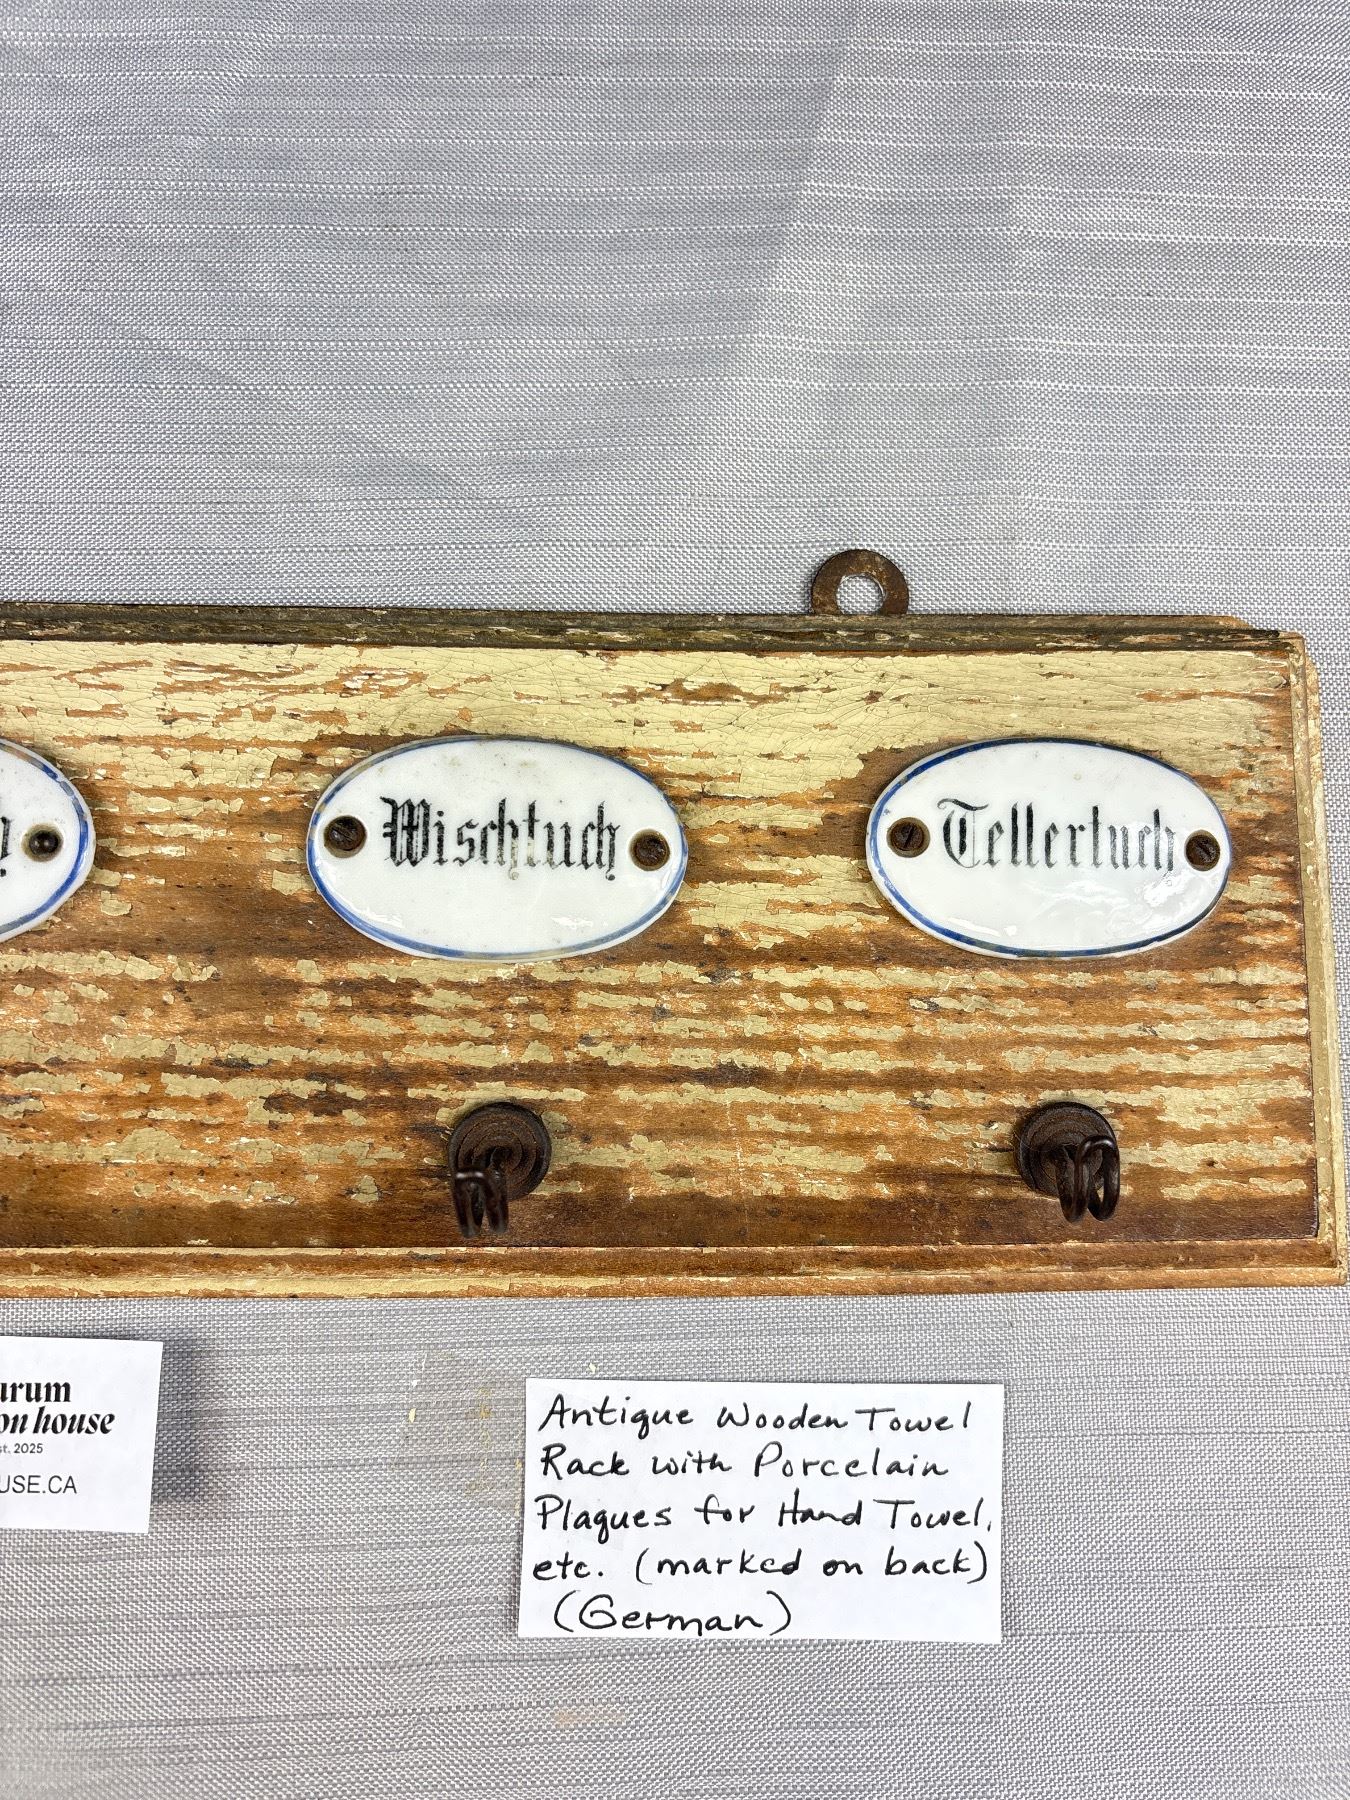 Wischtuch
Tellertuch
on house
st. 2025
USE.CA
Antique Wooden Towel
Rack with Porcelain
Plaques for Hand Towel,
etc. (marked on back)
(German)